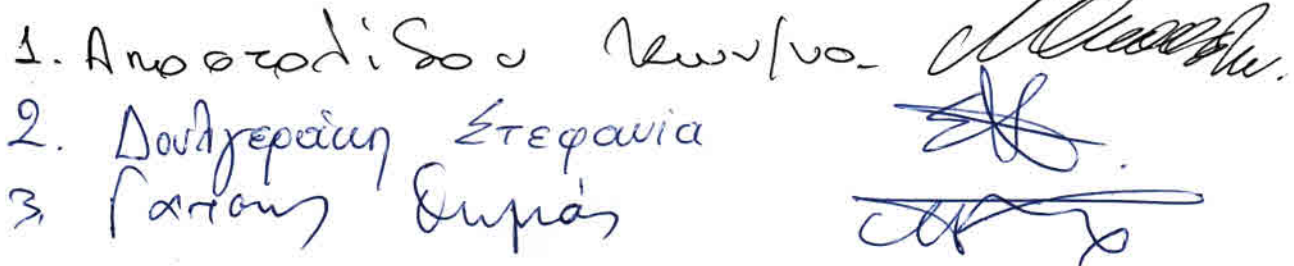 1. Αποστολίδου Κων/να
2. Δουλγεράκη Στεφανία
3. Θωμάς